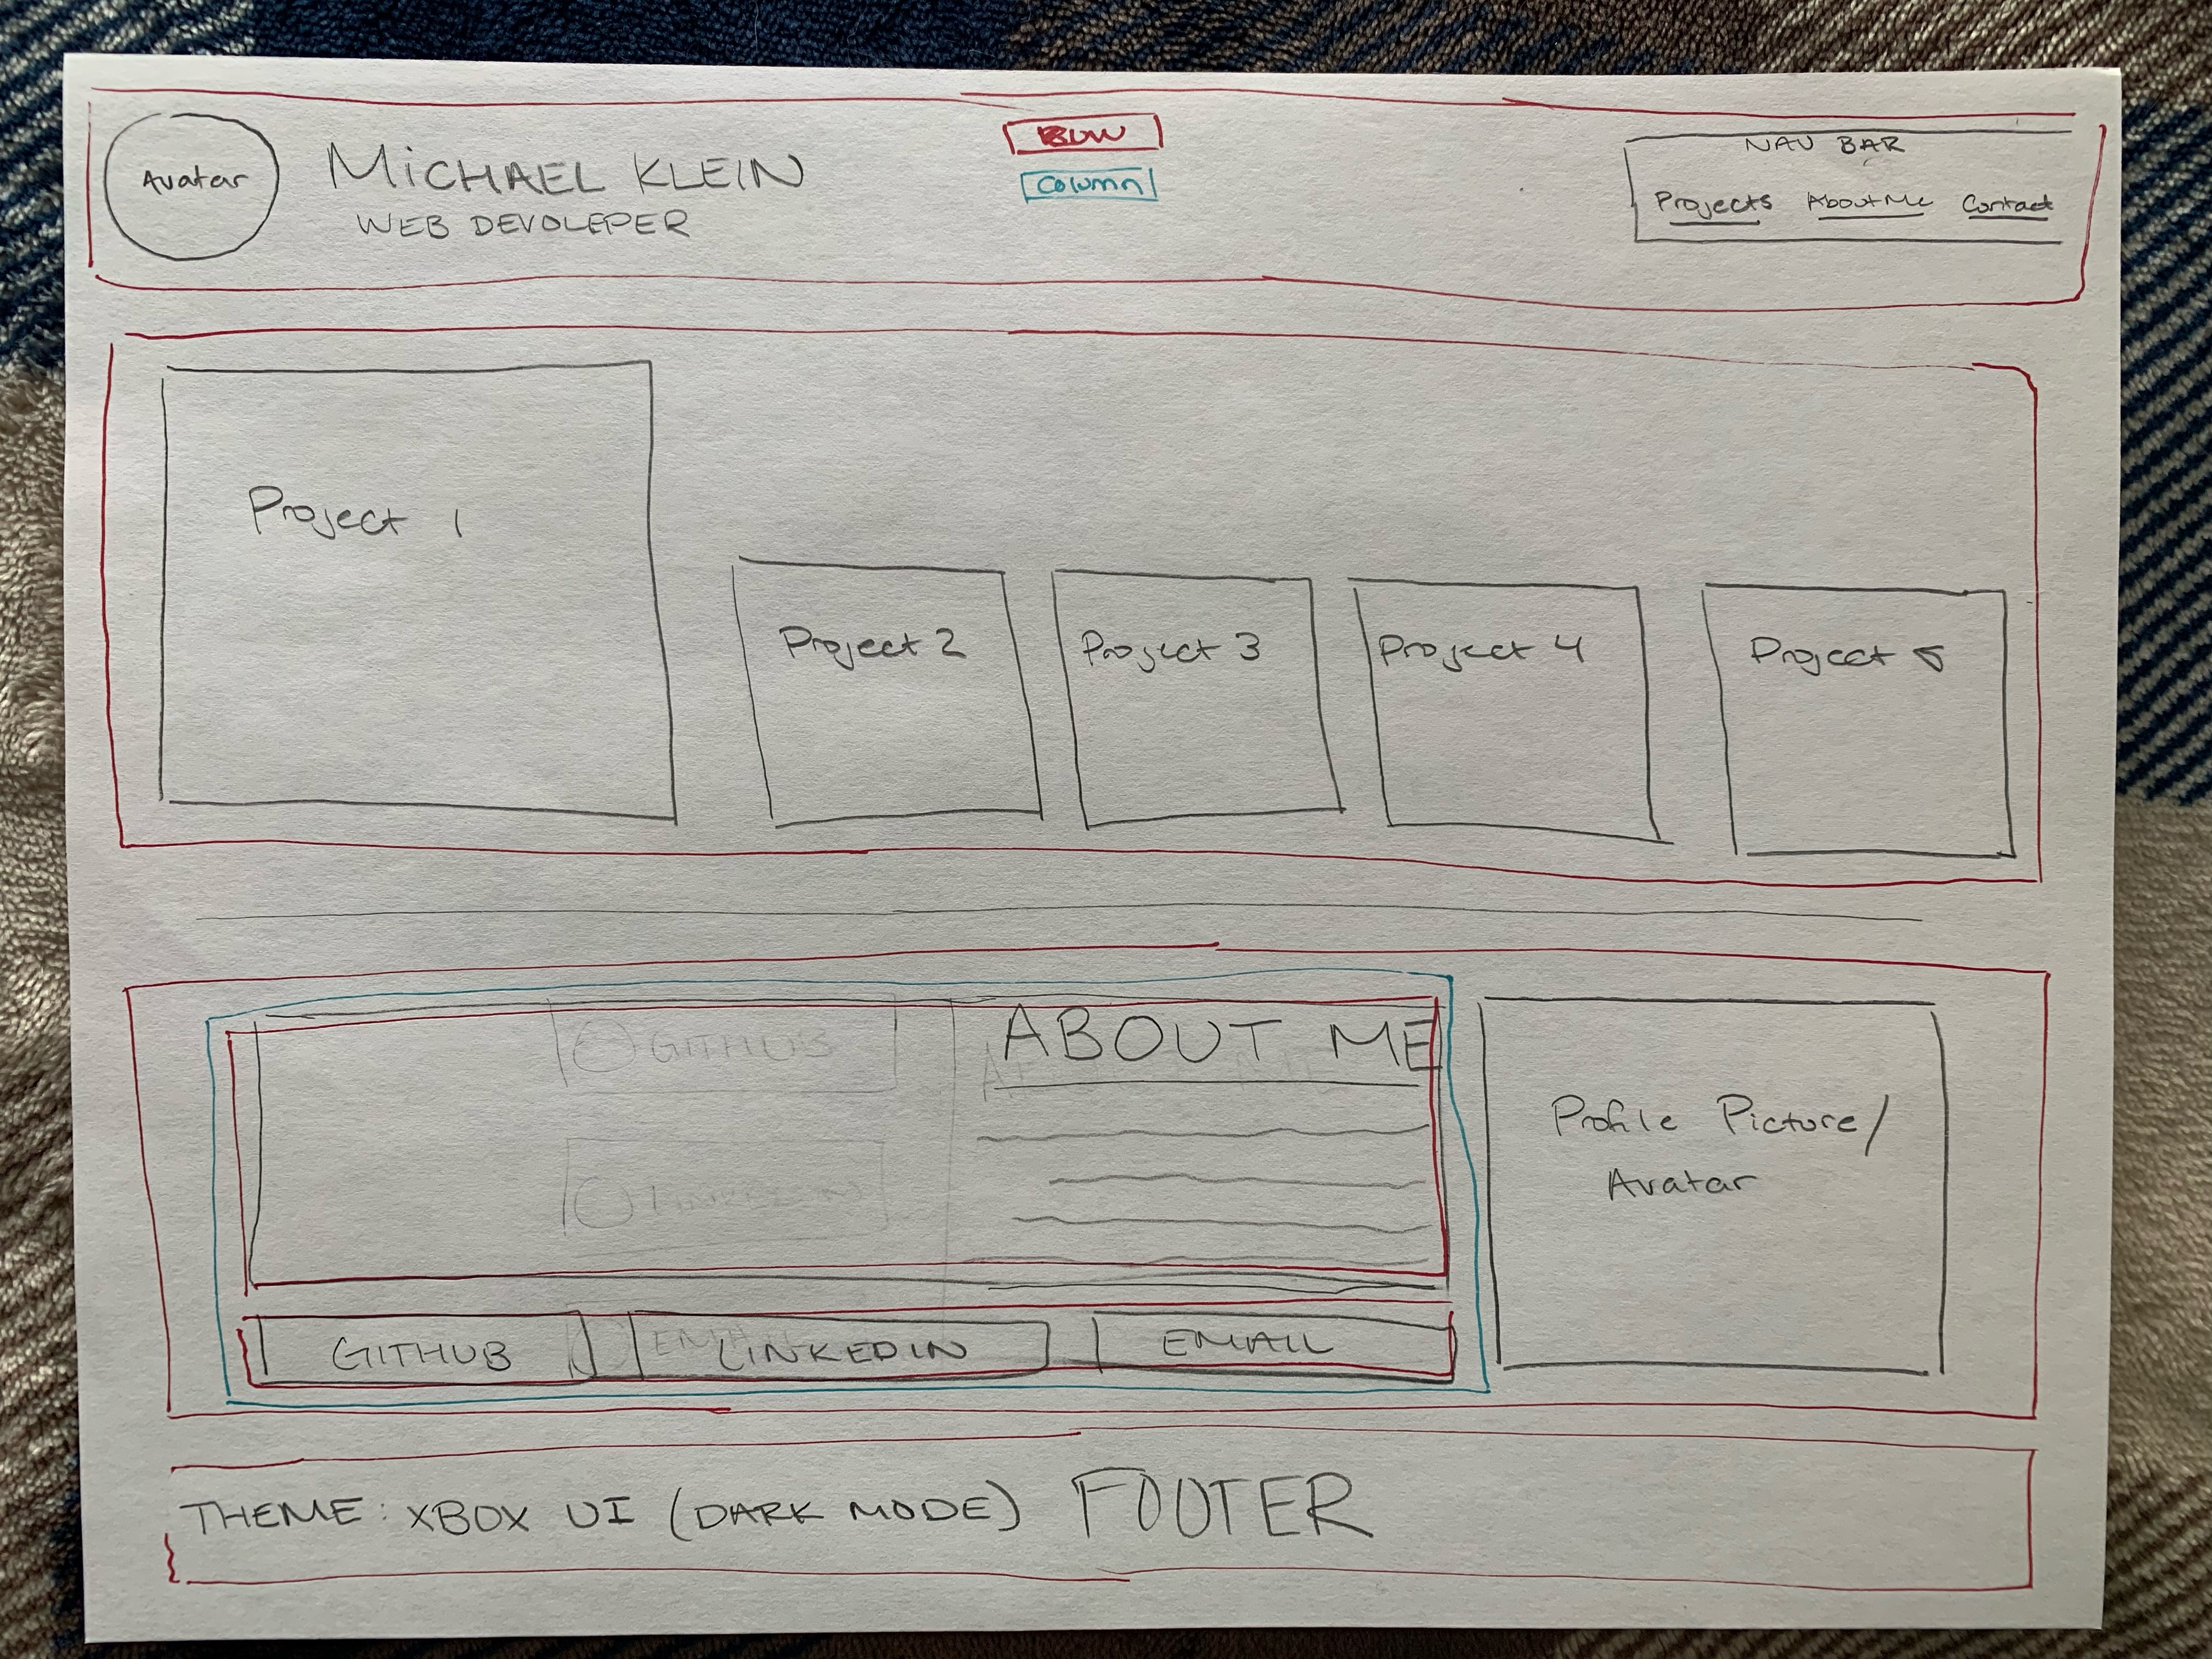 Avatar
MiCHAEL KLEIN
WEB DEVOLEPER
Column
NAV BAR
Projects About Me Contact
Project 1
Project 2
Project 3
Project 4
Project 5
ABOUT ME
GITHUB
GITHUB
LINKEDIN
EMAIL
Profile Picture/
Avatar
THEME: XBOX UI (DARK MODE) FOOTER